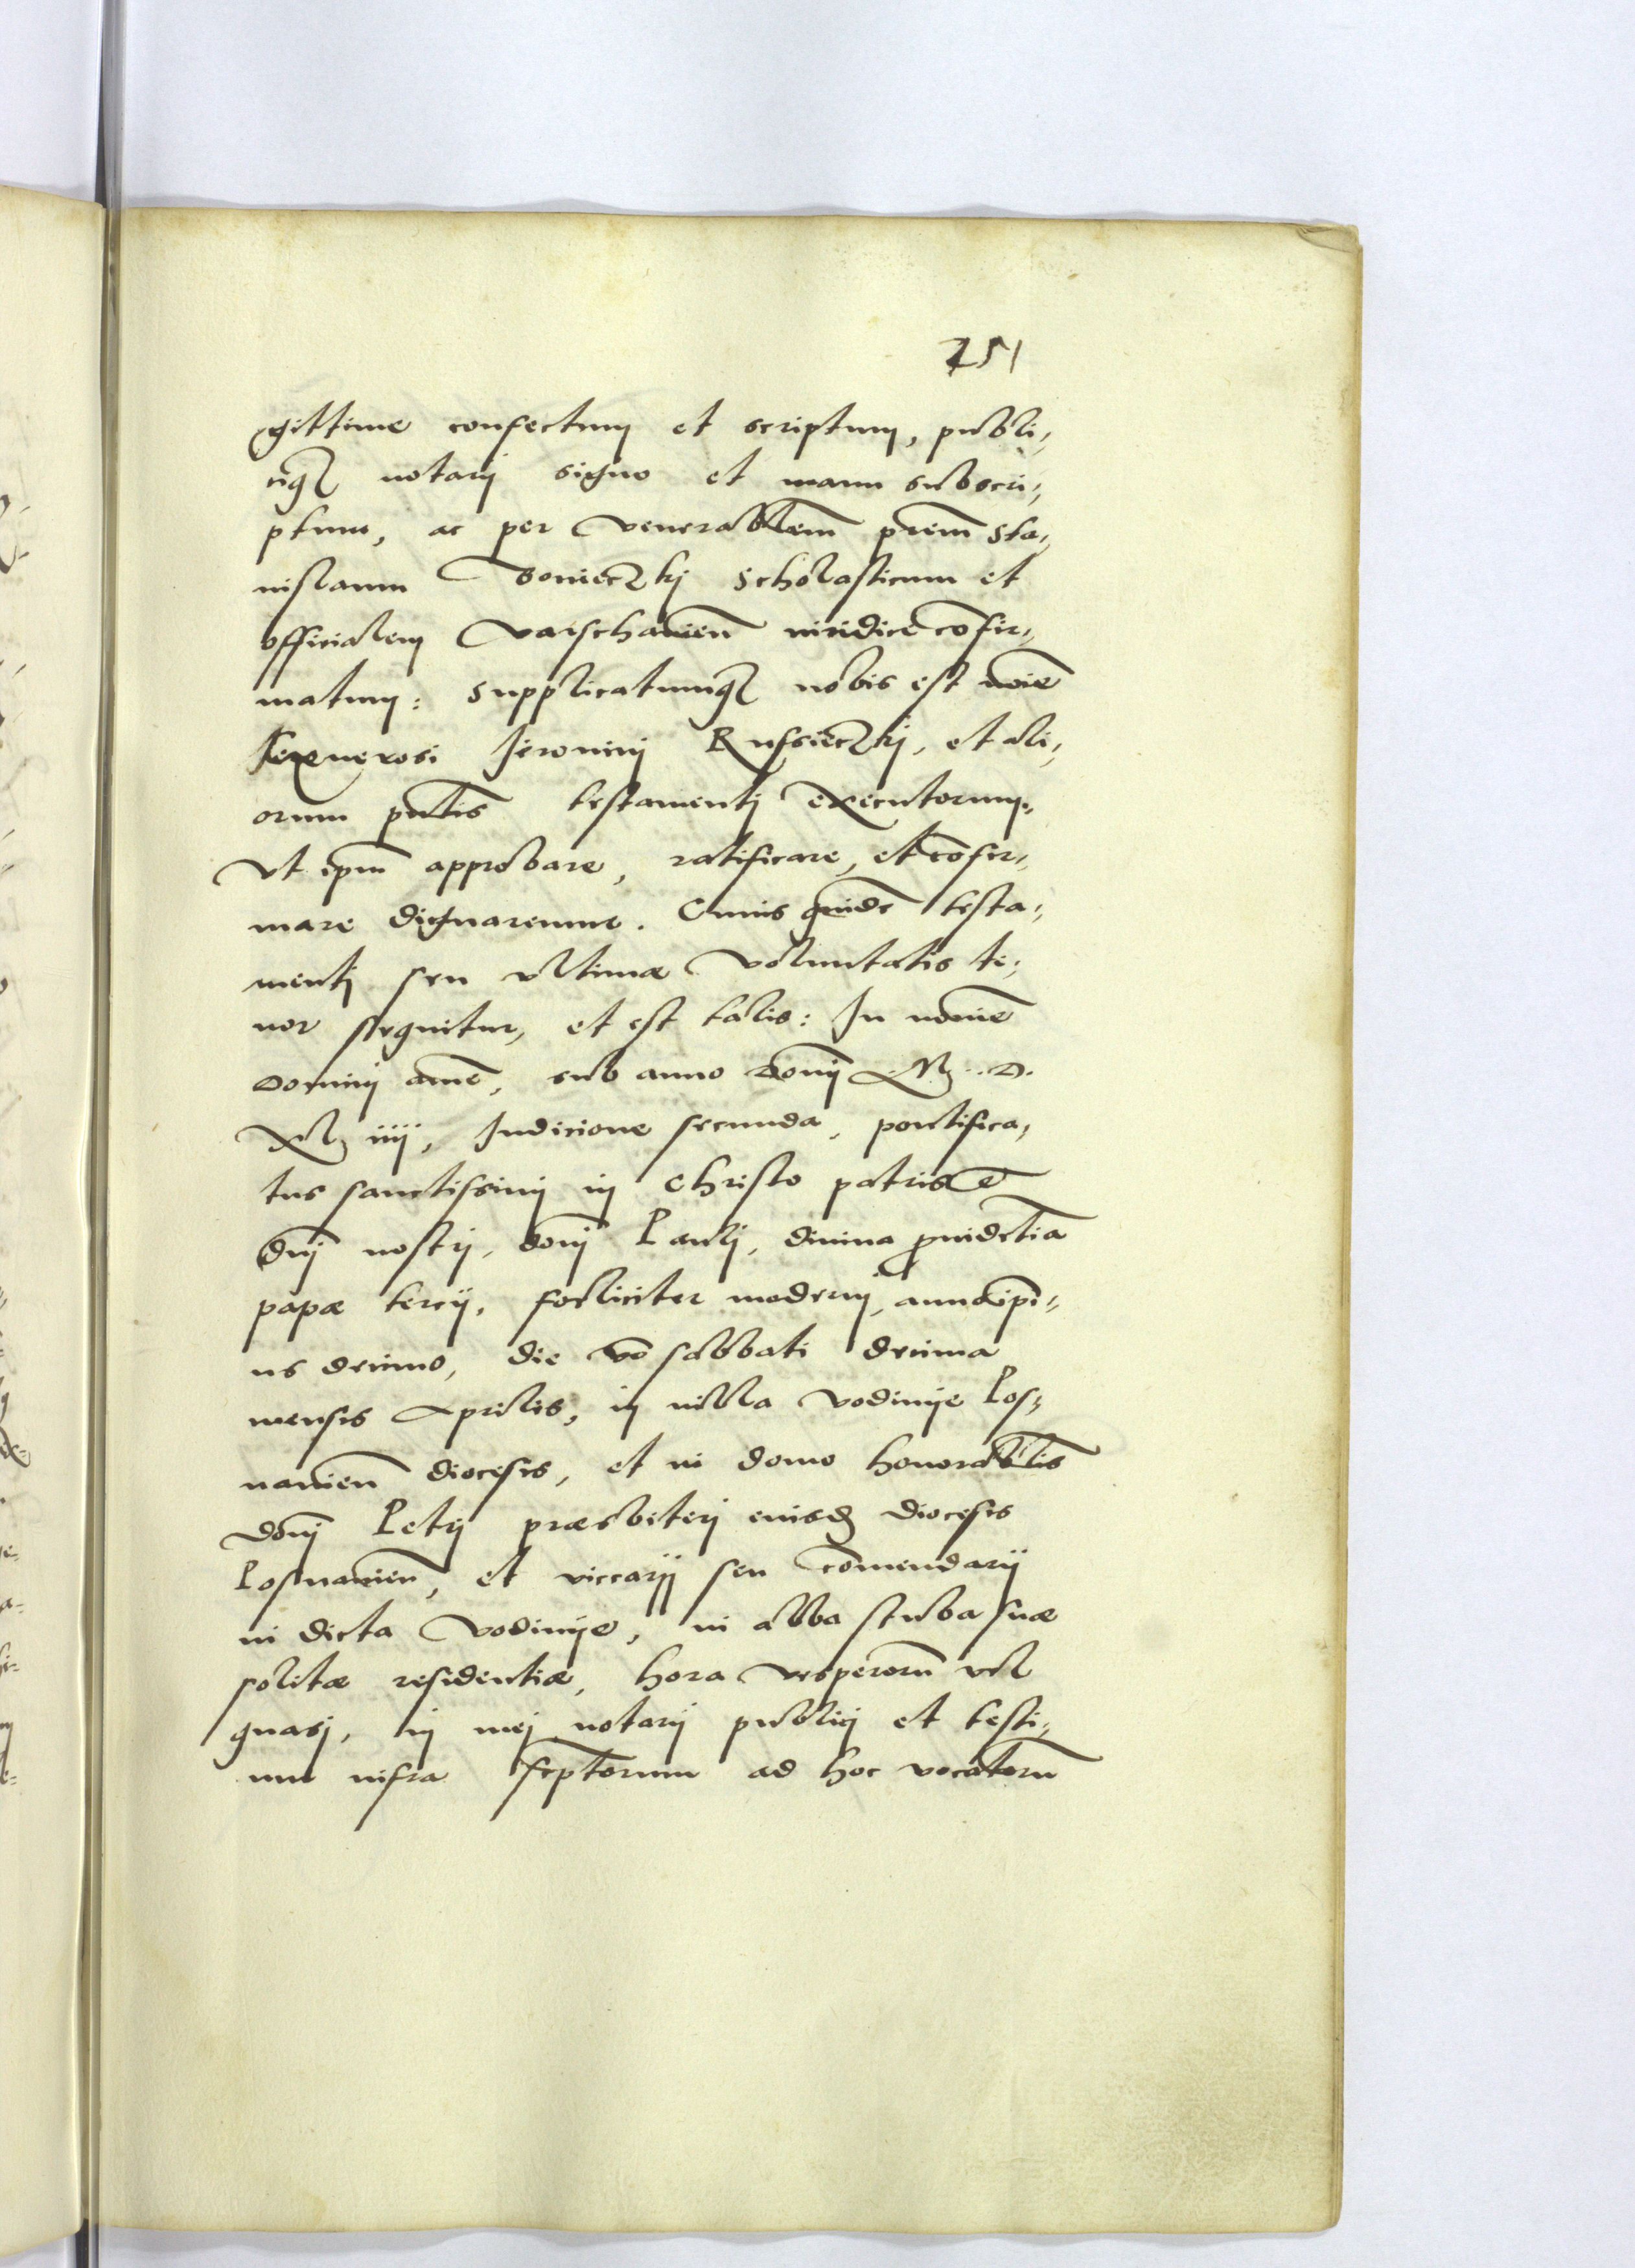 251
gittime confectum et scriptum, publi,,
ciq(ue) notarij signo et manu subscri,,
ptum, ac per Venerabilem p̄rem Sta,,
nislaum Scholasticum et
officialem Varschauien̄ iuridice cōfir,,
matum: Supplicatumq(ue) nobis est noīe
Generosi Jeronimj et ali,,
orum pn̄tis testamentj executorum,
vt ip̄m approbare, ratificare, et cōfir,,
mare dignaremur. Cuius quidē testa,,
mentj seu vltimæ voluntatis te,,
nor sequitur, et est talis: In nomīe
Dominj amē, sub anno Domj M. D.
XL iiij, Indicione secunda, pontifica,,
tus sanctissimj in Christo patris et
dnj nostrj, domj Paulj, diuina prouidētia
papæ tercij, fœliciter modernj, anno ipsi,,
us decimo, die vō sabbati decima
mensis Aprilis, in villa Vodinije Pos,,
nanien̄ diocesis, et in domo honorabilis
Domj Petrj præsbiterj eiusd(em) diocesis
Posnanien̄, et viccarij seu cōmendarij
in dicta Vodinije, in alba stuba suæ
solitæ residentiæ, hora vesperorū vel
quasj, in mej notarij publicj et testi,,
um infra scptorum ad hoc vocatorū